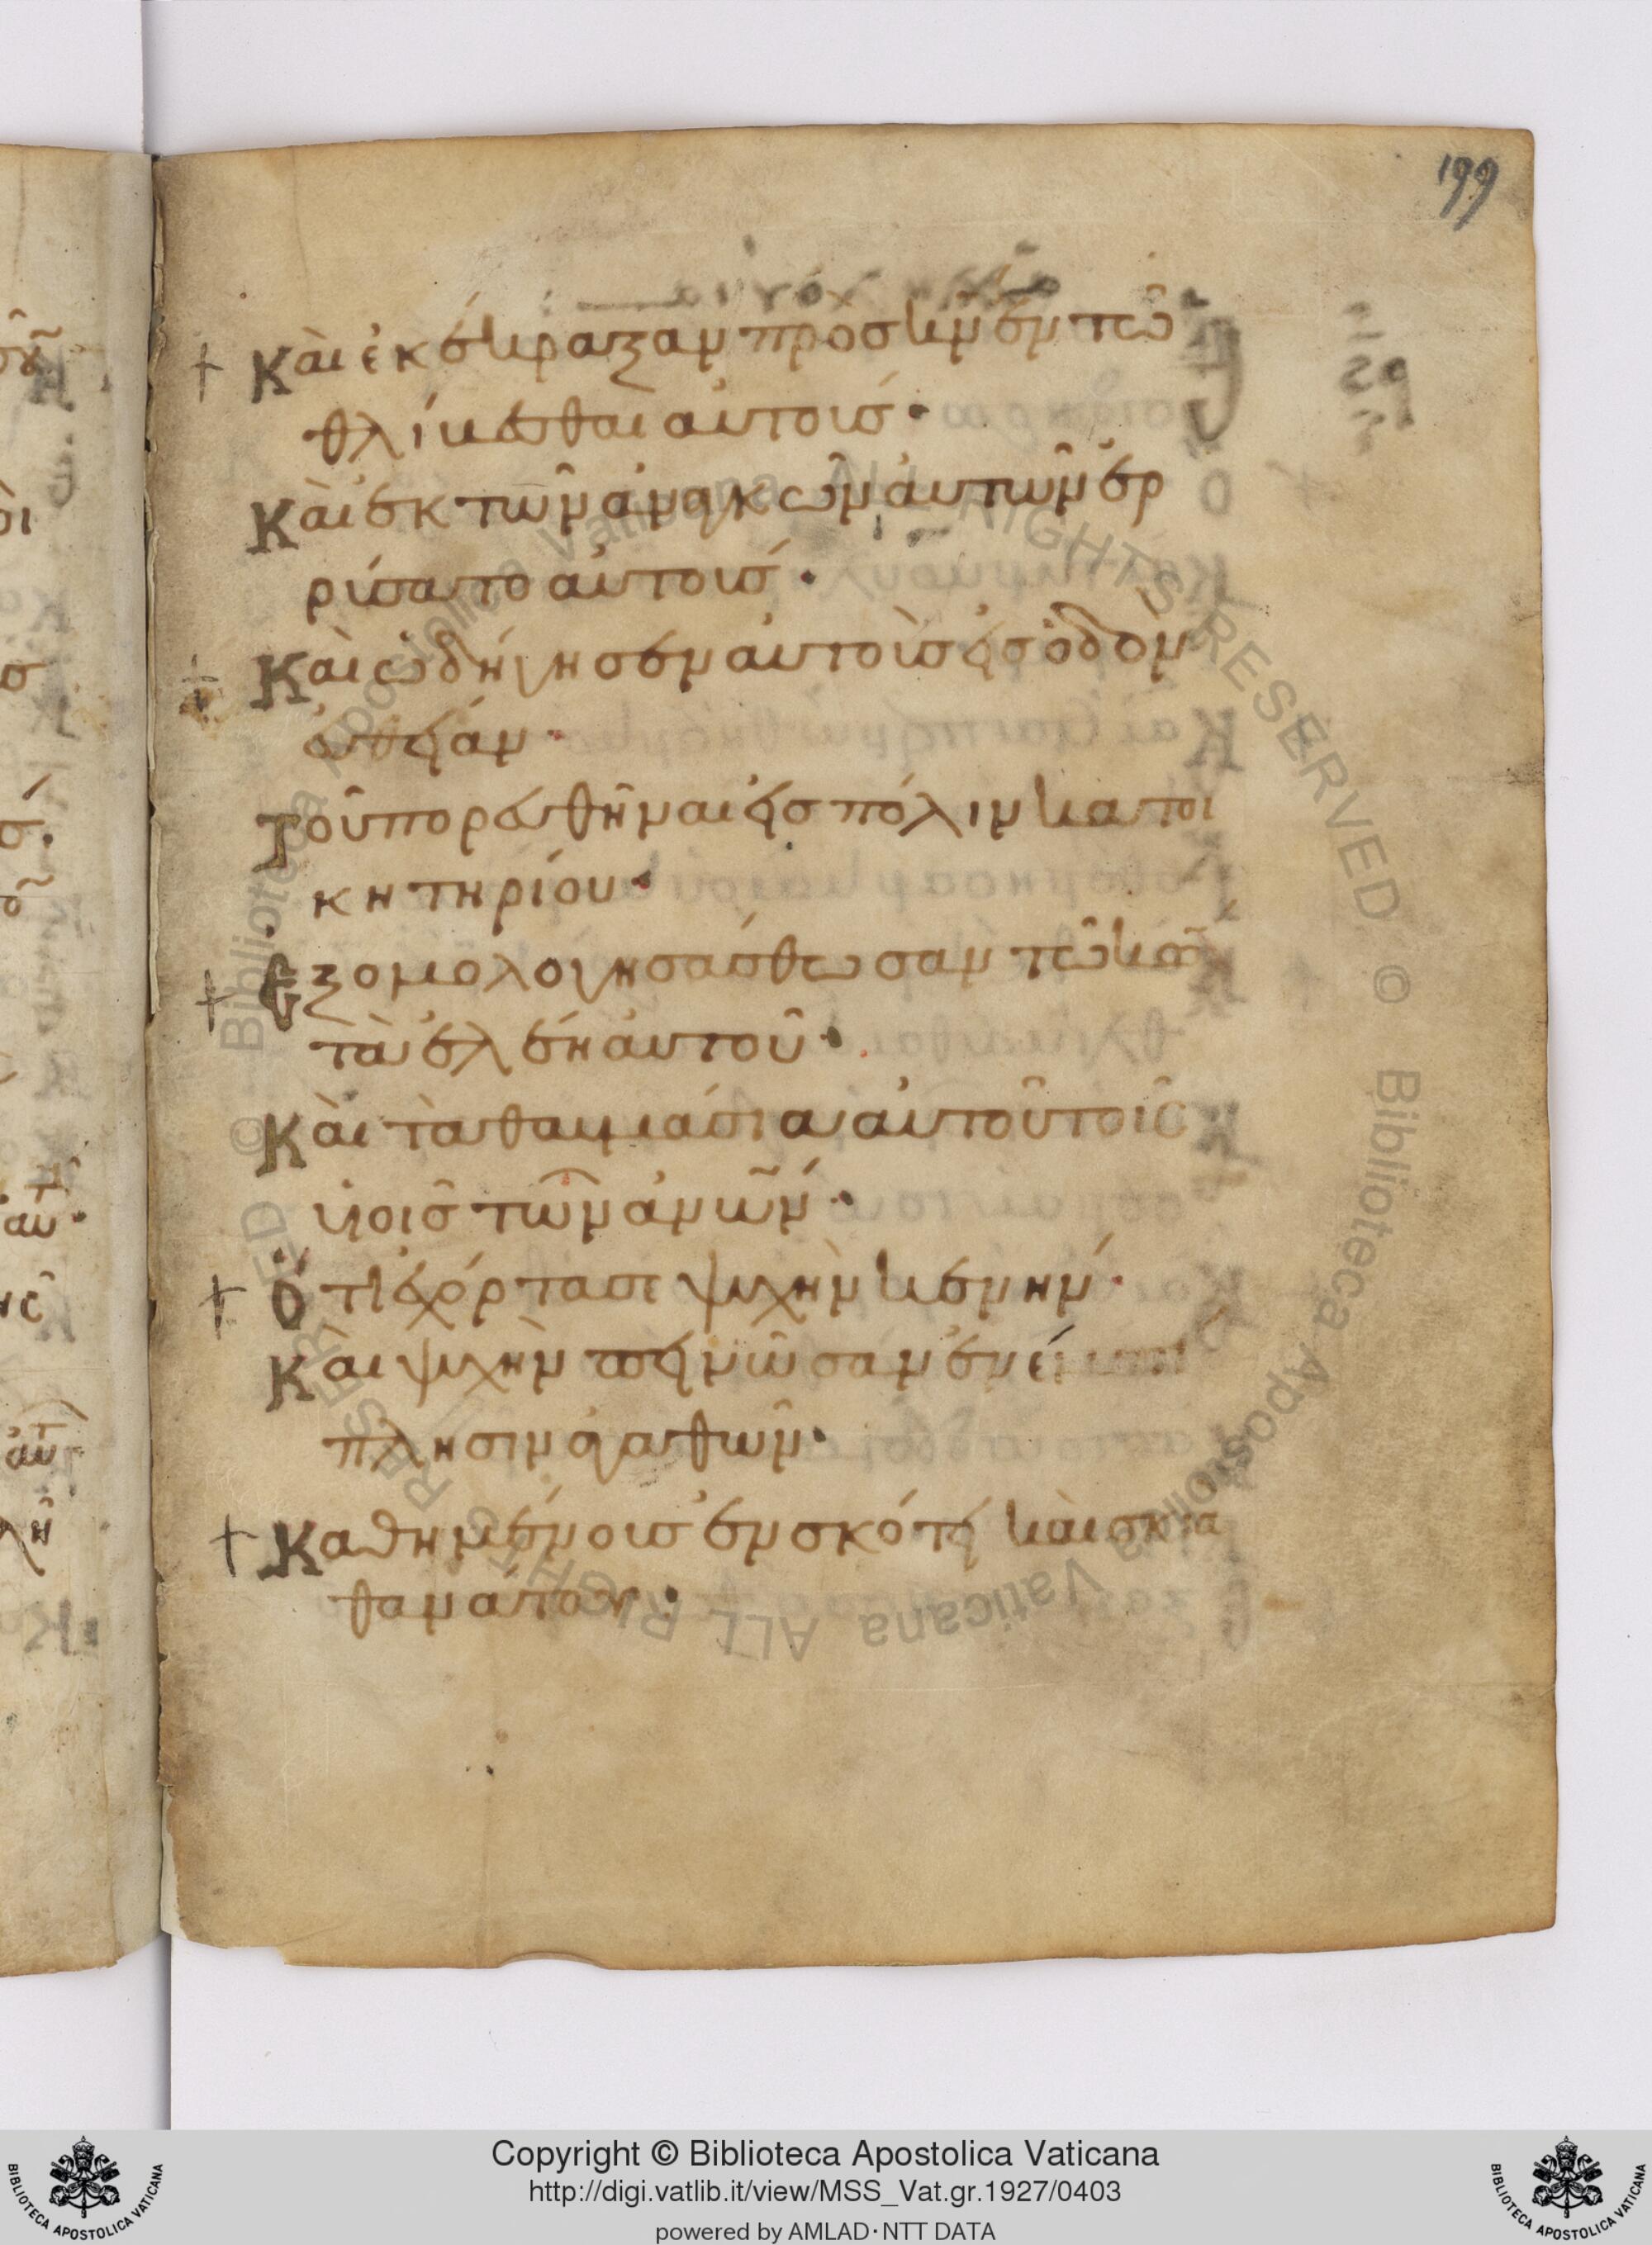 199
+ Καὶ ἐκέκραξαν προς κν̄ ἐν τῶ
θλίβεσθαι αὐτοὺσ·
Καὶ ἐκ τῶν ἀναγκῶν ἀυτῶν ἐρ
ρύσατο αὐτουσ·
+ Καὶ ὡδήγησεν αυτοὺσ εἰσ ὁδὸν
ἐυθεῖαν·
Τοῦ πορευθῆναι εἰσ πόλιν κατοι
κητηρίου·
+ Εξομολογησάσθωσαν τῶ κω̄
τὰ ἐλέη ἀυτοῦ·
Καὶ τὰ θαυμάσια αὐτοῦ τοῖσ
ὑιοῖσ τῶν ἀνῶ̄ν·
+ Ότι ἐχόρτασε ψυχὴν κενήν·
Και ψυχὴν πεινῶσαν ἐν
πλησεν ἀγαθῶν·
+ Καθημένουσ ἐν σκότει καὶ σκια
θανάτου·
Copyright © Biblioteca Apostolica Vaticana
http://digi.vatlib.it/view/MSS_Vat.gr.1927/0403
powered by AMLAD·NTT DATA